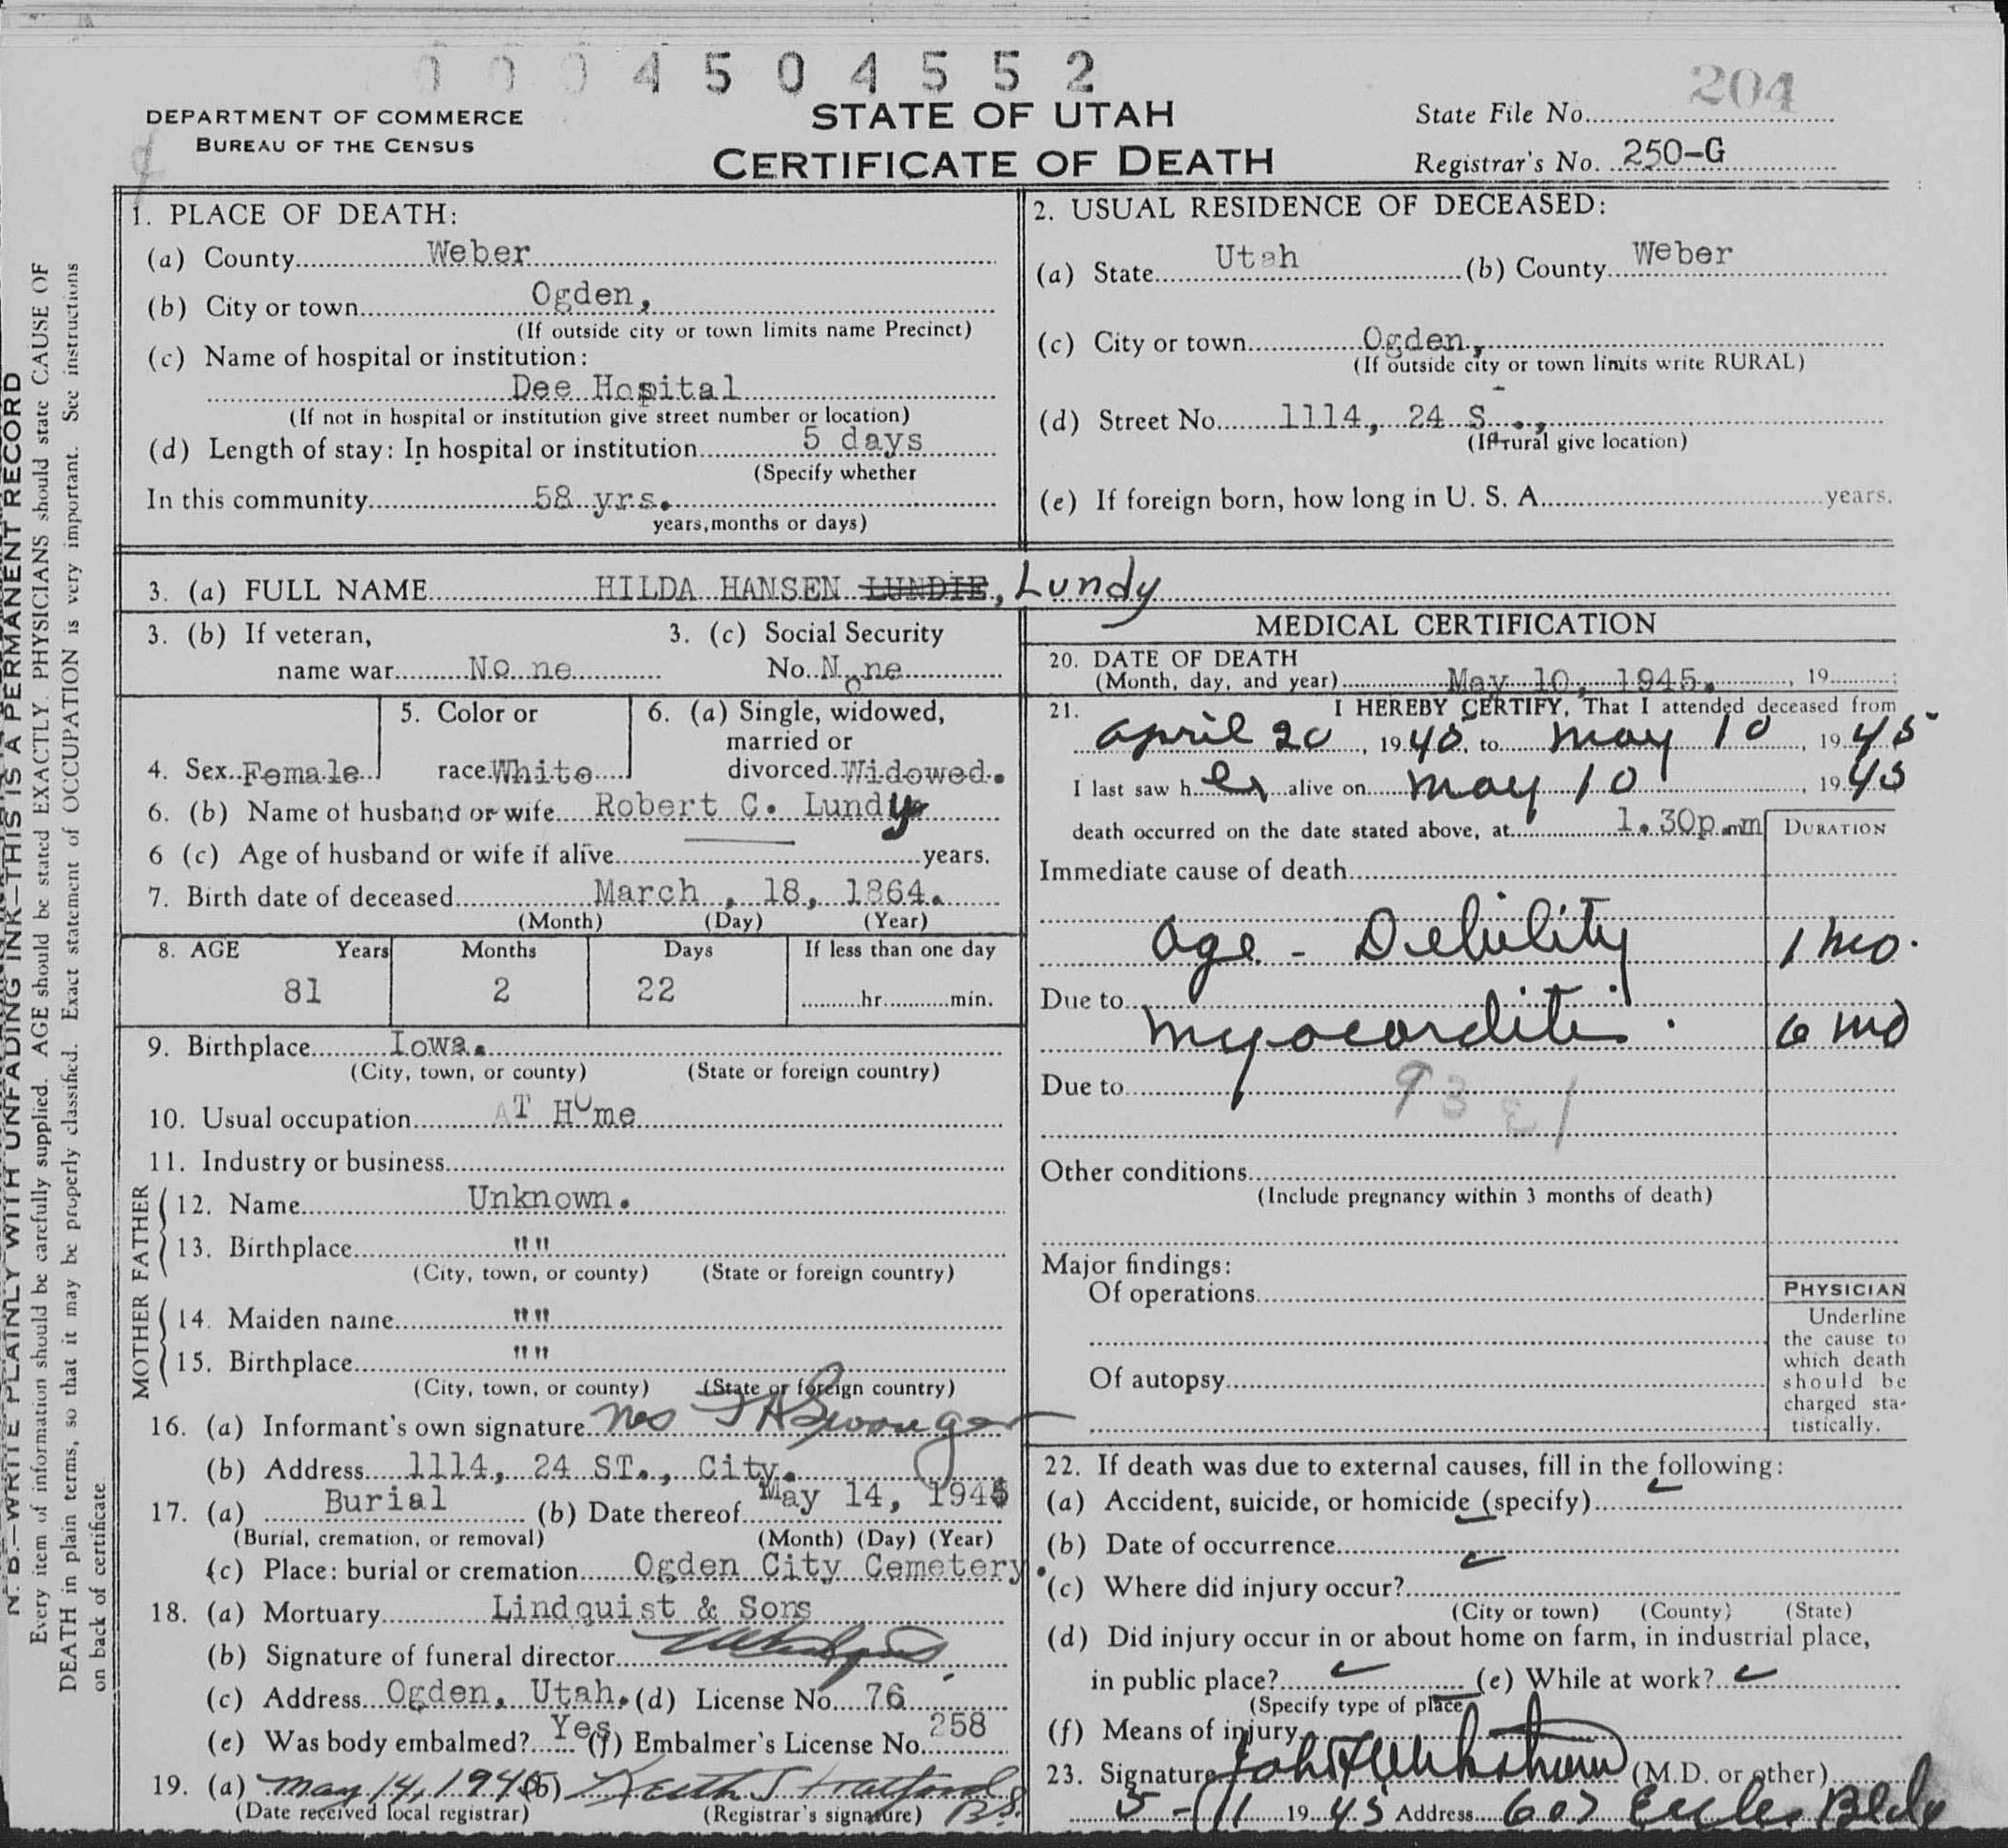 0004504552
204
DEPARTMENT OF COMMERCE
BUREAU OF THE CENSUS
STATE OF UTAH
CERTIFICATE OF DEATH
State File No.
Registrar's No. 250-G
1. PLACE OF DEATH:
(a) County Weber
(b) City or town Ogden,
(If outside city or town limits name Precinct)
(c) Name of hospital or institution:
Dee Hospital
(If not in hospital or institution give street number or location)
(d) Length of stay: In hospital or institution 5 days
(Specify whether
In this community 58 yrs.
years, months or days)
2. USUAL RESIDENCE OF DECEASED:
(a) State Utah (b) County Weber
(c) City or town Ogden,
(If outside city or town limits write RURAL)
(d) Street No. 1114, 24 S
(If rural give location)
(e) If foreign born, how long in U. S. A. years.
3. (a) FULL NAME HILDA HANSEN LUNDIE, Lundy
3. (b) If veteran,
name war None
3. (c) Social Security
No. None
4. Sex Female
5. Color or
race White
6. (a) Single, widowed,
married or
divorced Widowed.
6. (b) Name of husband or wife Robert C. Lundy
6 (c) Age of husband or wife if alive years.
7. Birth date of deceased March, 18, 1864.
(Month) (Day) (Year)
8. AGE Years Months Days If less than one day
81 2 22 hr. min.
9. Birthplace Iowa.
(City, town, or county) (State or foreign country)
10. Usual occupation AT Home
11. Industry or business
FATHER
12. Name Unknown.
13. Birthplace "" 
(City, town, or county) (State or foreign country)
MOTHER
14. Maiden name ""
15. Birthplace ""
(City, town, or county) (State or foreign country)
16. (a) Informant's own signature
(b) Address 1114, 24 ST., City.
17. (a) Burial (b) Date thereof May 14, 1945
(Burial, cremation, or removal) (Month) (Day) (Year)
(c) Place: burial or cremation Ogden City Cemetery.
18. (a) Mortuary Lindquist & Sons
(b) Signature of funeral director
(c) Address Ogden, Utah. (d) License No. 76
(e) Was body embalmed? Yes (f) Embalmer's License No. 258
19. (a) May 14, 1945 (b) Keith Stratford
(Date received local registrar) (Registrar's signature)
MEDICAL CERTIFICATION
20. DATE OF DEATH
(Month, day, and year) May 10, 1945. , 19 ;
21. I HEREBY CERTIFY, That I attended deceased from
April 20, 1945, to May 10, 1945
I last saw her alive on May 10, 1945
death occurred on the date stated above, at 1.30p.mm
DURATION
Immediate cause of death
age - Debility 1 mo.
Due to
myocarditis. 6 mo
Due to
Other conditions
(Include pregnancy within 3 months of death)
Major findings:
Of operations
Of autopsy
PHYSICIAN
Underline
the cause to
which death
should be
charged sta-
tistically.
22. If death was due to external causes, fill in the following:
(a) Accident, suicide, or homicide (specify)
(b) Date of occurrence
(c) Where did injury occur?
(City or town) (County) (State)
(d) Did injury occur in or about home on farm, in industrial place,
in public place? (e) While at work?
(Specify type of place)
(f) Means of injury
23. Signature (M.D. or other)
5-11 1945 Address 607 Eccles Bldg
N. B.—WRITE PLAINLY WITH UNFADING INK—THIS IS A PERMANENT RECORD
Every item of information should be carefully supplied. AGE should be stated EXACTLY. PHYSICIANS should state CAUSE OF
DEATH in plain terms, so that it may be properly classified. Exact statement of OCCUPATION is very important. See instructions
on back of certificate.